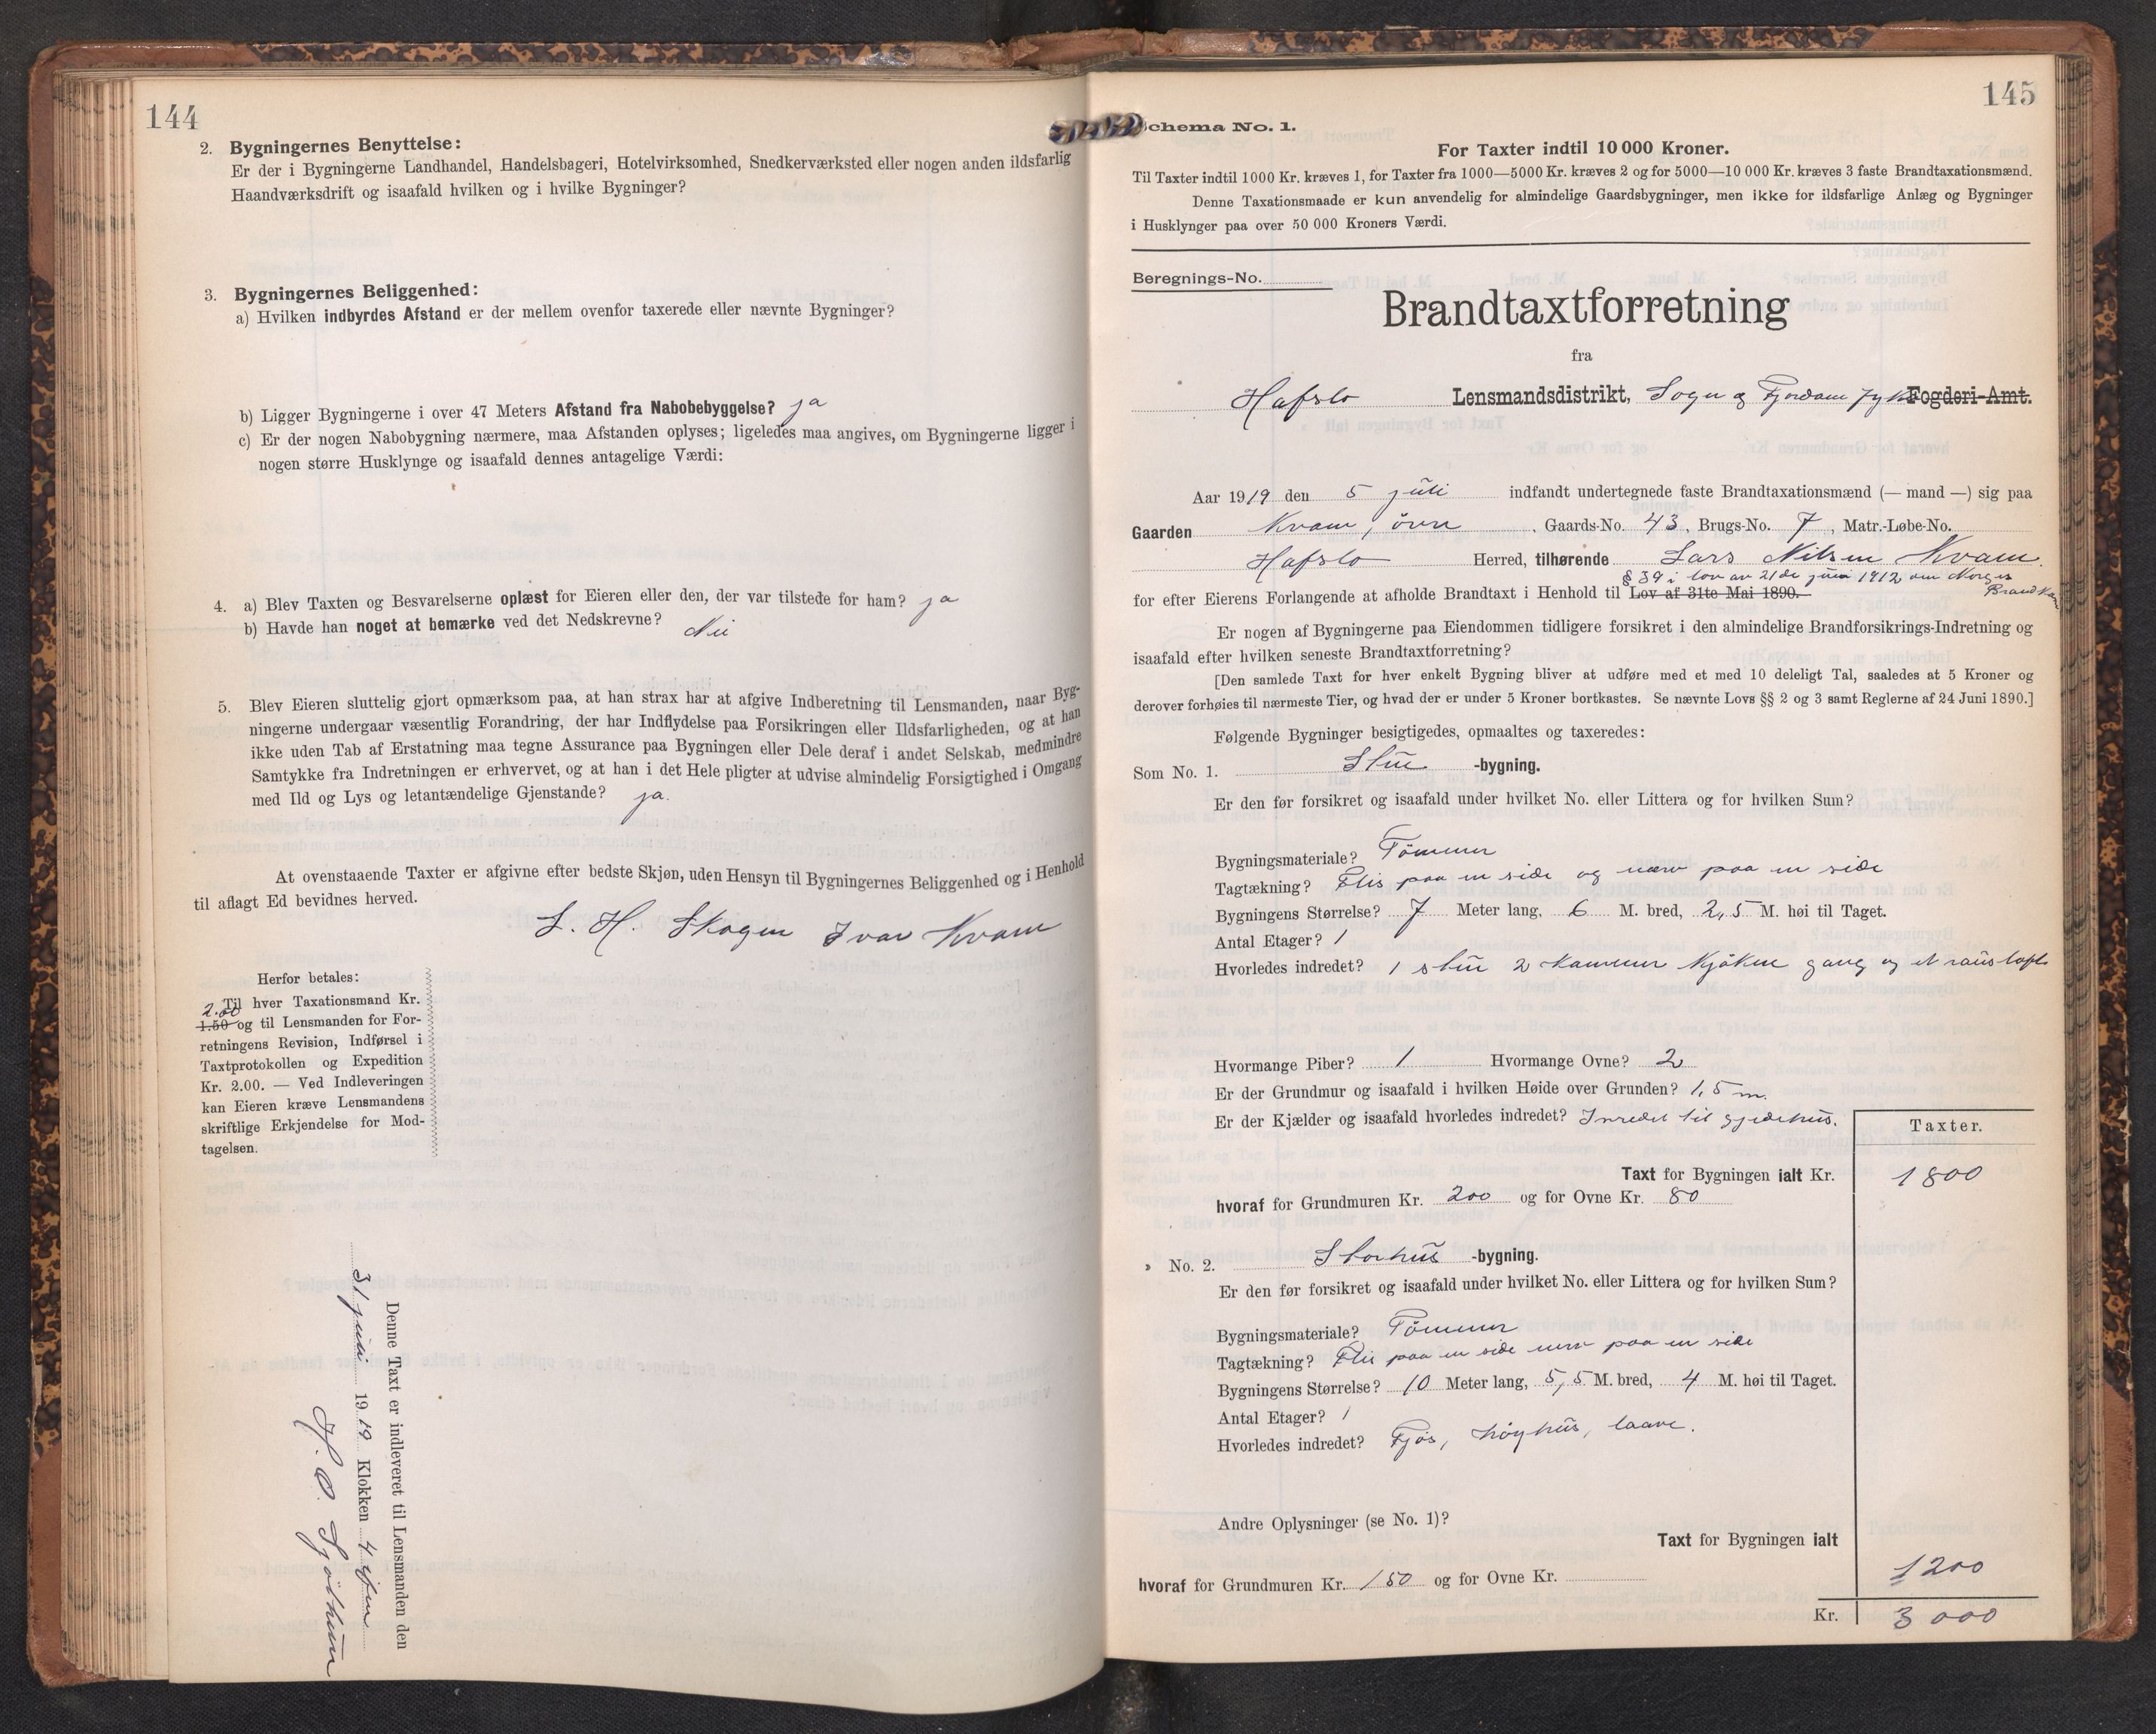 144
2. Bygningernes Benyttelse:
Er der i Bygningerne Landhandel, Handelsbageri, Hotelvirksomhed, Snedkerværksted eller nogen anden ildsfarlig
Haandværksdrift og isaafald hvilken og i hvilke Bygninger?
3. Bygningernes Beliggenhed:
a) Hvilken indbyrdes Afstand er der mellem ovenfor taxerede eller nævnte Bygninger?
b) Ligger Bygningerne i over 47 Meters Afstand fra Nabobebyggelse? ja
c) Er der nogen Nabobygning nærmere, maa Afstanden oplyses; ligeledes maa angives, om Bygningerne ligger i
nogen større Husklynge og isaafald dennes antagelige Værdi:
4. a) Blev Taxten og Besvarelserne oplæst for Eieren eller den, der var tilstede for ham? ja
b) Havde han noget at bemærke ved det Nedskrevne? Nei
5. Blev Eieren sluttelig gjort opmærksom paa, at han strax har at afgive Indberetning til Lensmanden, naar Byg-
ningerne undergaar væsentlig Forandring, der har Indflydelse paa Forsikringen eller Ildsfarligheden, og at han
ikke uden Tab af Erstatning maa tegne Assurance paa Bygningen eller Dele deraf i andet Selskab, medmindre
Samtykke fra Indretningen er erhvervet, og at han i det Hele pligter at udvise almindelig Forsigtighed i Omgang
med Ild og Lys og letantændelige Gjenstande? ja.
At ovenstaaende Taxter er afgivne efter bedste Skjøn, uden Hensyn til Bygningernes Beliggenhed og i Henhold
til aflagt Ed bevidnes herved.
L. H. Skogen Ivar Kvam
Herfor betales:
Til hver Taxationsmand Kr.
2.00
1.50 og til Lensmanden for For-
retningens Revision, Indførsel i
Taxtprotokollen og Expedition
Kr. 2.00. — Ved Indleveringen
kan Eieren kræve Lensmandens
skriftlige Erkjendelse for Mod-
tagelsen.
Denne Taxt er indleveret til Lensmanden den
31 juli 1919 Klokken 4 efm
145
Schema No. 1.
For Taxter indtil 10 000 Kroner.
Til Taxter indtil 1000 Kr. kræves 1, for Taxter fra 1000—5000 Kr. kræves 2 og for 5000—10 000 Kr. kræves 3 faste Brandtaxationsmænd.
Denne Taxationsmaade er kun anvendelig for almindelige Gaardsbygninger, men ikke for ildsfarlige Anlæg og Bygninger
i Husklynger paa over 50 000 Kroners Værdi.
Beregnings-No.
Brandtaxtforretning
fra
Hafslo Lensmandsdistrikt, Sogn og Fjordane fylke Fogderi-Amt.
Aar 1919 den 5 juli indfandt undertegnede faste Brandtaxationsmænd (— mand —) sig paa
Gaarden Kvam, øvre, Gaards-No. 43, Brugs-No. 7, Matr.-Løbe-No.
Hafslo Herred, tilhørende Lars Nilsen Kvam.
§ 39 i lov av 21de juni 1912 om Norges
Brandk
for efter Eierens Forlangende at afholde Brandtaxt i Henhold til Lov af 31te Mai 1890.
Er nogen af Bygningerne paa Eiendommen tidligere forsikret i den almindelige Brandforsikrings-Indretning og
isaafald efter hvilken seneste Brandtaxtforretning?
[Den samlede Taxt for hver enkelt Bygning bliver at udføre med et med 10 deleligt Tal, saaledes at 5 Kroner og
derover forhøies til nærmeste Tier, og hvad der er under 5 Kroner bortkastes. Se nævnte Lovs §§ 2 og 3 samt Reglerne af 24 Juni 1890.]
Følgende Bygninger besigtigedes, opmaaltes og taxeredes:
Som No. 1. Stue -bygning.
Er den før forsikret og isaafald under hvilket No. eller Littera og for hvilken Sum?
Bygningsmateriale? Tømmer
Tagtækning? Flis paa en side og nærv paa en side
Bygningens Størrelse? 7 Meter lang, 6 M. bred, 2,5 M. høi til Taget.
Antal Etager? 1
Hvorledes indredet? 1 stue 2 kammer kjøken gang og et rauslofts
Hvormange Piber? 1 Hvormange Ovne? 2
Er der Grundmur og isaafald i hvilken Høide over Grunden? 1,5 m.
Er der Kjælder og isaafald hvorledes indredet? Inredet til gjedehus.
Taxter.
Taxt for Bygningen ialt Kr. 1800
hvoraf for Grundmuren Kr. 200 og for Ovne Kr. 80
No. 2. Storhus -bygning.
Er den før forsikret og isaafald under hvilket No. eller Littera og for hvilken Sum?
Bygningsmateriale? Tømmer
Tagtækning? Flis paa en side nærv paa en side
Bygningens Størrelse? 10 Meter lang, 5,5 M. bred, 4 M. høi til Taget.
Antal Etager? 1
Hvorledes indredet? Fjøs, høyhus, laave.
Andre Oplysninger (se No. 1)?
Taxt for Bygningen ialt
1200
hvoraf for Grundmuren Kr. 150 og for Ovne Kr.
Kr. 3000